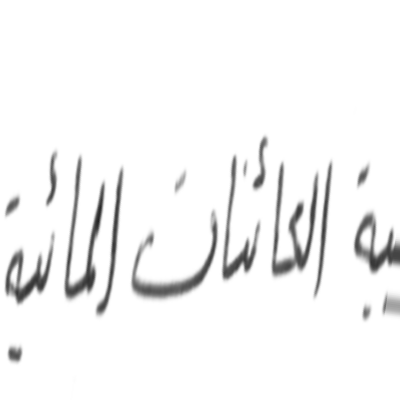 الكائنات المائية